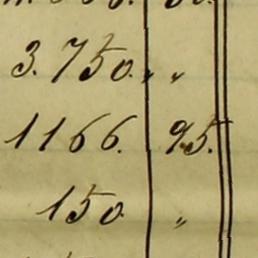 3.750. „ „
1166. 95.
150 „